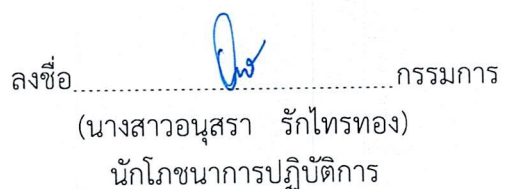 ลงชื่อ........................................................กรรมการ
(นางสาวอนุสรา รักไทรทอง)
นักโภชนาการปฏิบัติการ